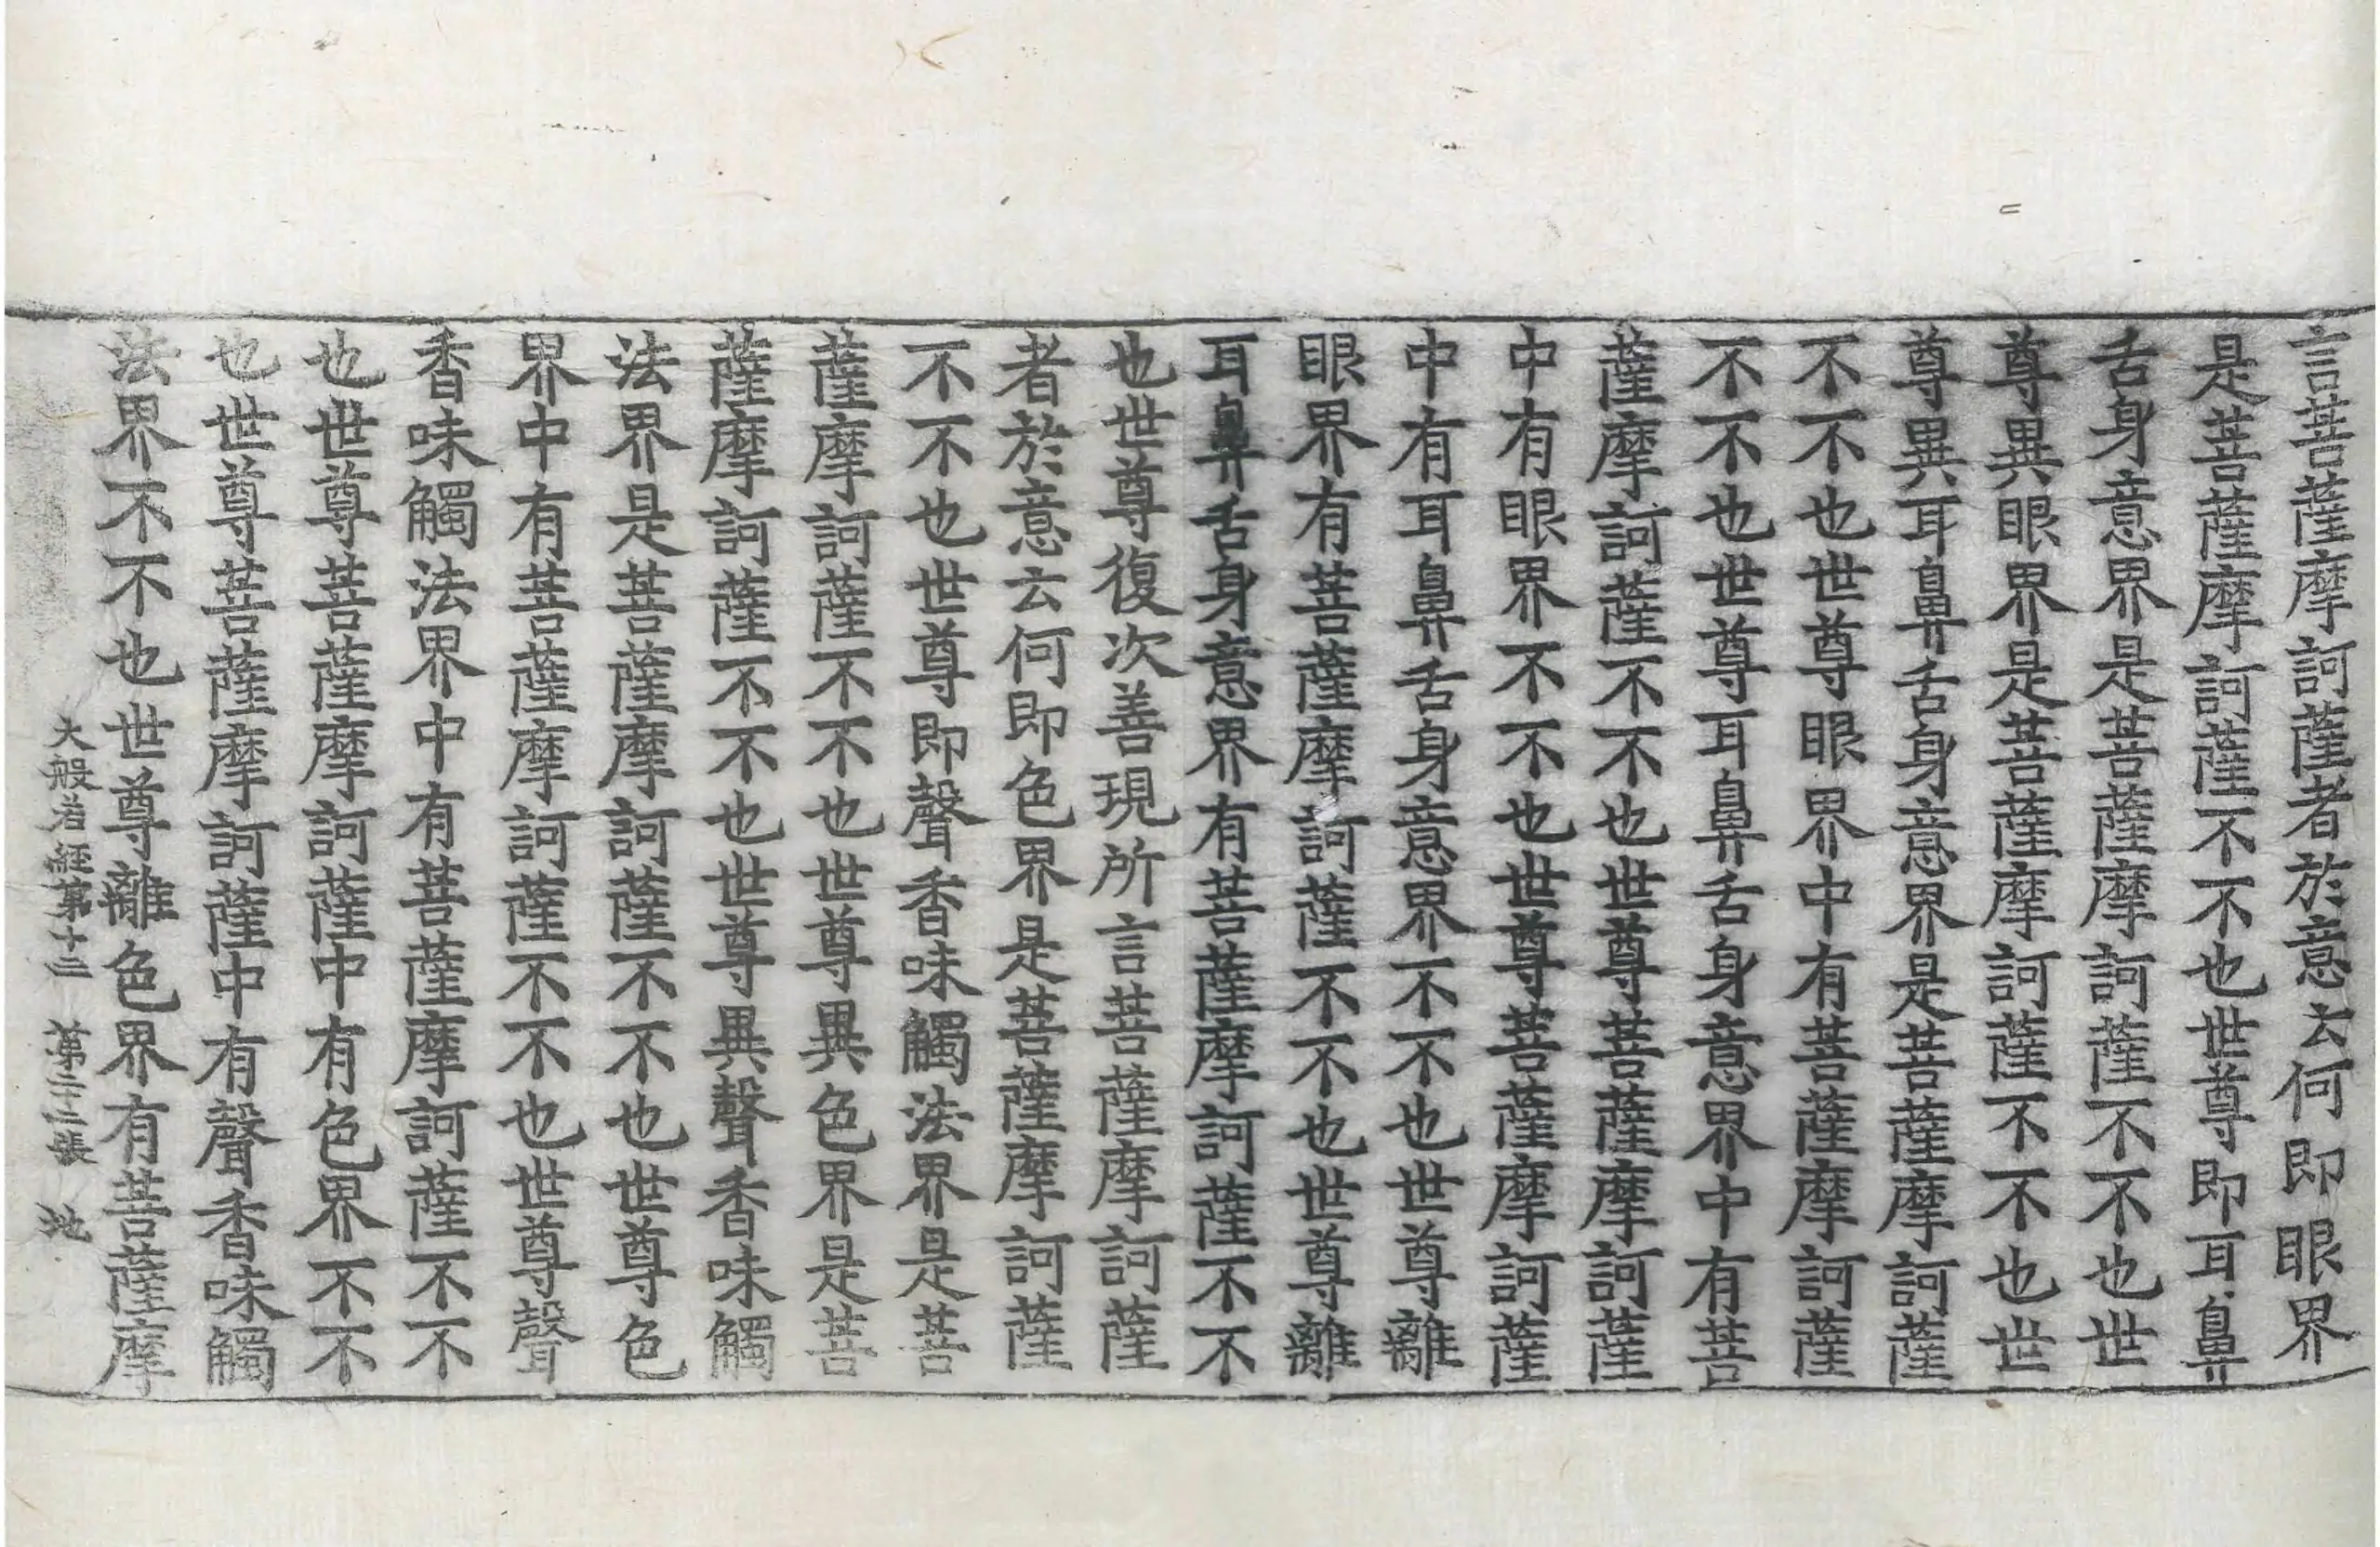 言菩薩摩訶薩者於意云何即眼界
是菩薩摩訶薩不不也世尊即耳鼻
舌身意界是菩薩摩訶薩不不也世
尊異眼界是菩薩摩訶薩不不也世
尊異耳鼻舌身意界是菩薩摩訶薩
不不也世尊眼界中有菩薩摩訶薩
不不也世尊耳鼻舌身意界中有菩
薩摩訶薩不不也世尊菩薩摩訶薩
中有眼界不不也世尊菩薩摩訶薩
中有耳鼻舌身意界不不也世尊離
眼界有菩薩摩訶薩不不也世尊離
耳鼻舌身意界有菩薩摩訶薩不不
也世尊復次善現所言菩薩摩訶薩
者於意云何即色界是菩薩摩訶薩
不不也世尊即聲香味觸法界是菩
薩摩訶薩不不也世尊異色界是菩
薩摩訶薩不不也世尊異聲香味觸
法界是菩薩摩訶薩不不也世尊色
界中有菩薩摩訶薩不不也世尊聲
香味觸法界中有菩薩摩訶薩不不
也世尊菩薩摩訶薩中有色界不不
也世尊菩薩摩訶薩中有聲香味觸
法界不不也世尊離色界有菩薩摩
大般若經第十二 第二十二張 地